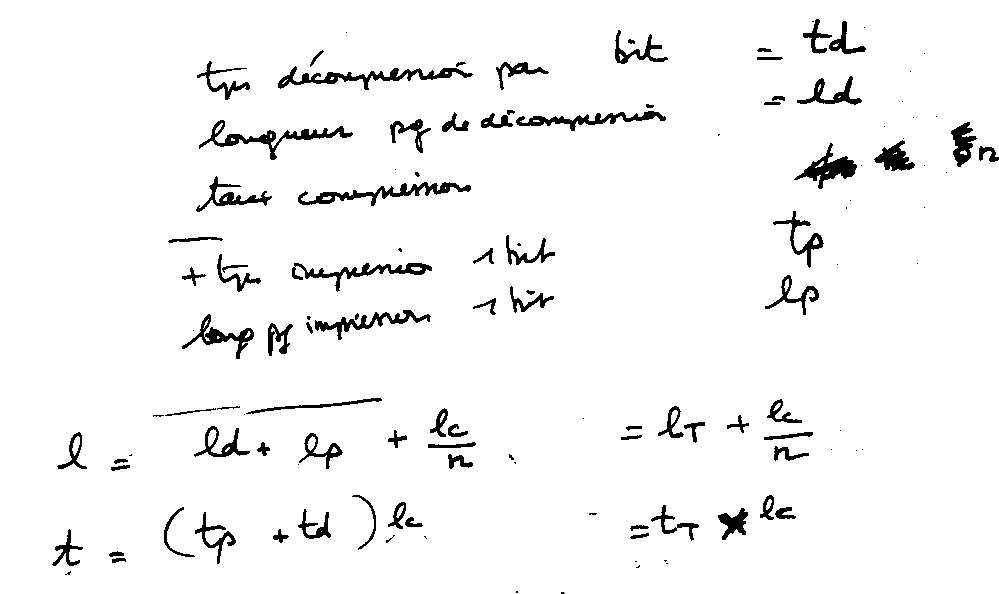 tps décompression par bit = td
longueur pg de décompression = ld
taux compression n
+ tps impression 1 bit tp
long pg impression 1 bit lp
l = ld + lp + lc/n = lT + lc/n
t = (tp + td) lc = tT × lc